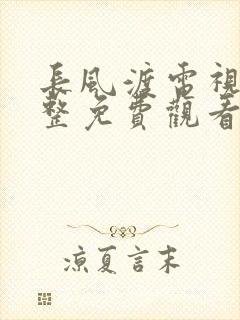 長風渡電視
整免費觀看
涼夏言末